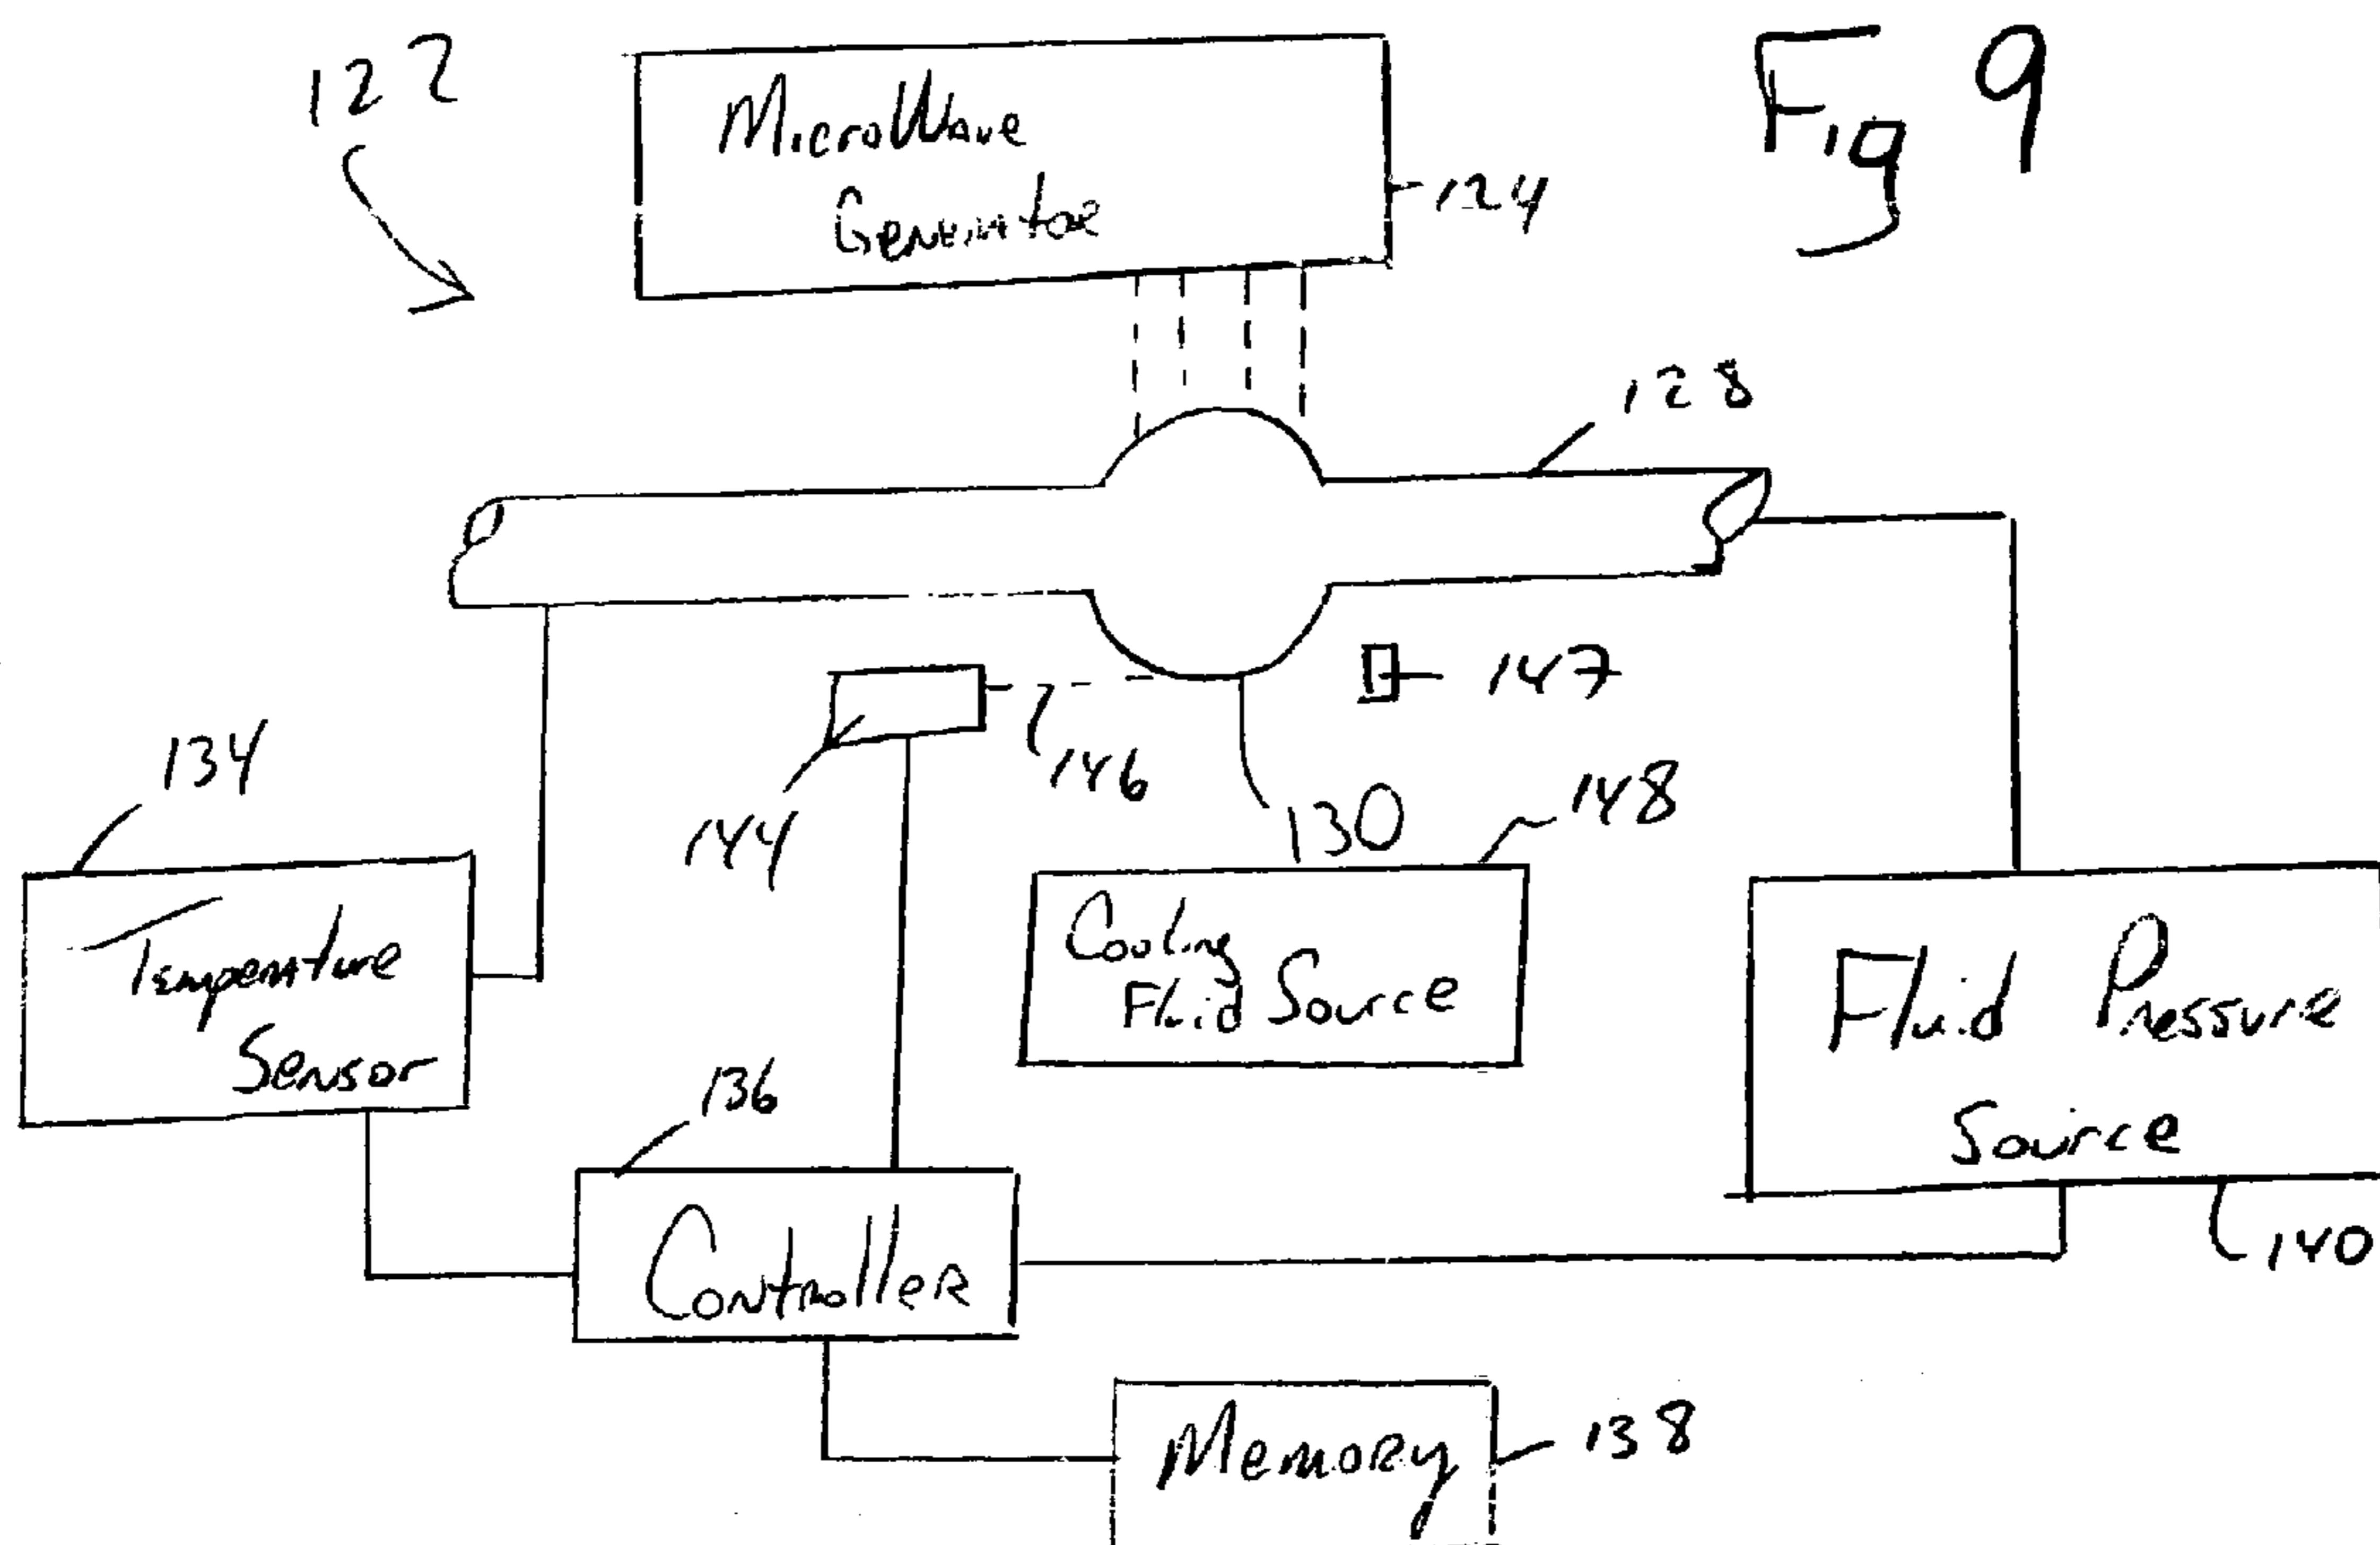 122
Fig 9
MicroWave
Generator
124
128
147
146
134
144
130
148
Temperature
Sensor
Cooling
Fluid Source
Fluid Pressure
Source
136
Controller
140
Memory
138